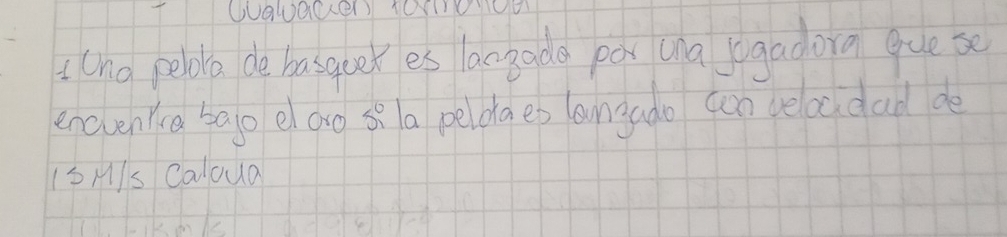 1 Una pelota de basquet es lanzada por una jugadora que se
encuentra bajo el aro si la pelota es lanzado con velocidad de
15 M/s Calcula